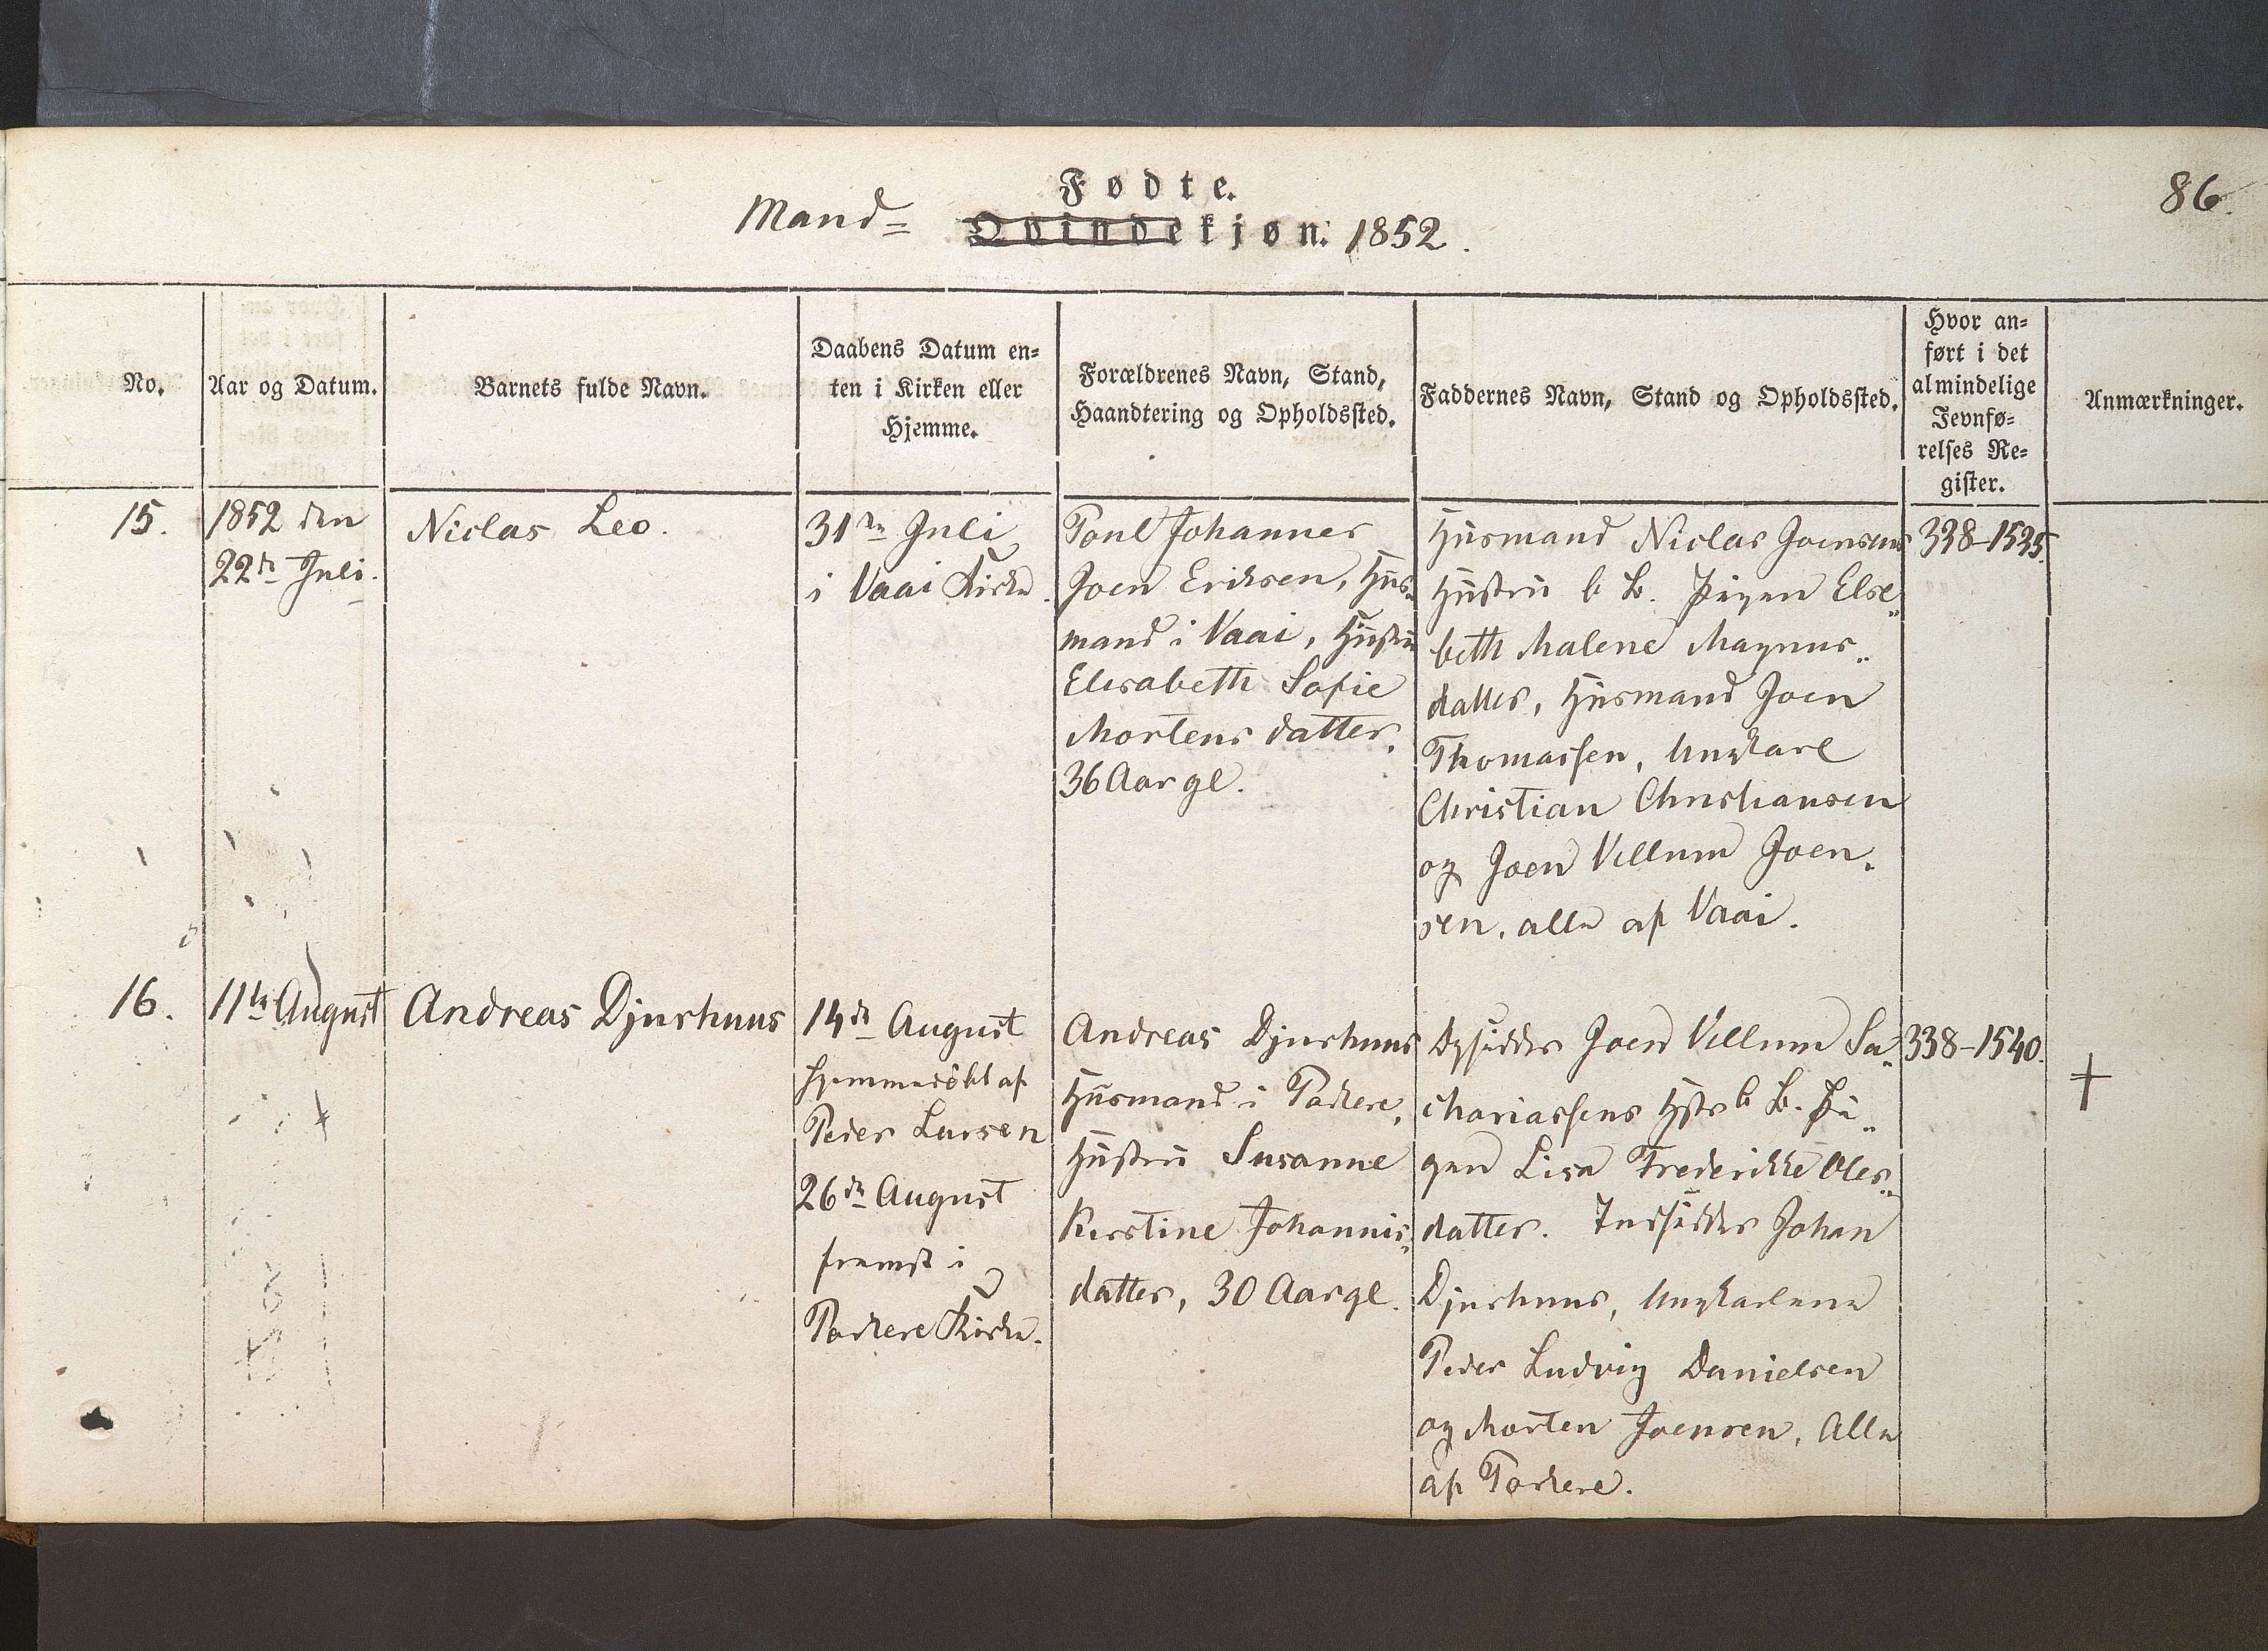 Fødte.
Mand= Qvindekjøn: 1852.
86.
No.
Aar og Datum.
Barnets fulde Navn.
Daabens Datum en=
ten i Kirken eller
Hjemme.
Forældrenes Navn, Stand,
Haandtering og Opholdssted.
Faddernes Navn, Stand og Opholdssted.
Hvor an=
ført i det
almindelige
Jevnfø=
relses Re=
gister.
Anmærkninger.
15.
1852 den
22de Juli.
Niclas Leo.
31te Juli
i Vaai Kirke.
Poul Johannes
Joen Eriksen, Huus=
mand i Vaai, Hustru
Elisabeth Sofie
Mortens datter,
36 Aar gl.
Husmand Niclas Joensens
Hustru b B. Pigen Else
beth Malene Magnus
datter, Husmand Joen
Thomassen, Ungkarl
Christian Christiansen
og Joen Villum Joen
sen, alle af Vaai.
338-1535.
16.
11te August
Andreas Djurhuus
14de August
hjemmedøbt af
Peder Larsen
26de August
fremst i
Porkere Kirke.
Andreas Djurhuus
Husmand i Porkere,
Hustru Susanne
Kirstine Johannis
datter, 30 Aar gl.
Joen Villum Sa
chariassens Hstr b B. Pi
gen Lisa Frederikke Oles
datter. Indsidder Johan
Djurhuus, Ungkarlene
Peder Ludvig Danielsen
og Morten Joensen, Alle
af Porkere.
338-1540.